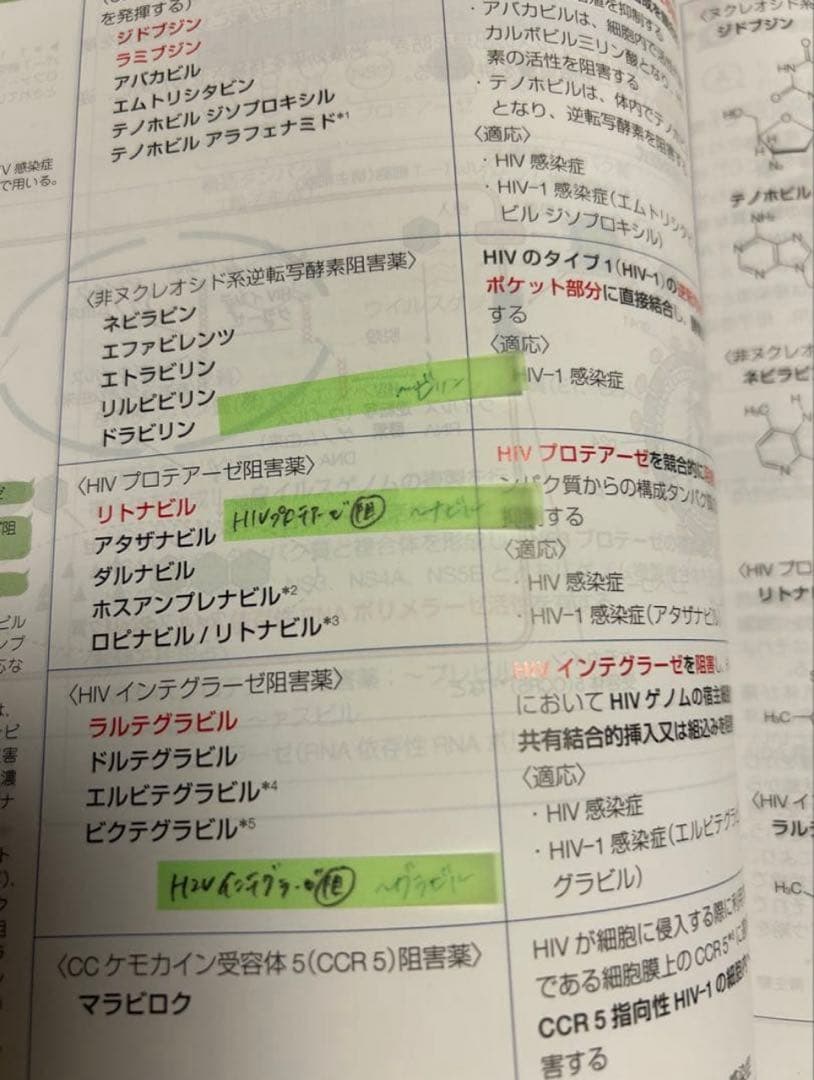 を発揮する）
ジドブジン
ラミブジン
アバカビル
エムトリシタビン
テノホビル ジソプロキシル
テノホビル アラフェナミド*1
・アバカビルは、細胞内で
カルボビルミリン酸となり、
素の活性を阻害する
・テノホビルは、体内でテノホ
となり、逆転写酵素を阻害する
〈適応〉
・HIV 感染症
・HIV-1 感染症（エムトリシタ
ビル ジソプロキシル）
〈非ヌクレオシド系逆転写酵素阻害薬〉
ネビラピン
エファビレンツ
エトラビリン
リルピビリン
ドラビリン
～ビリン
HIV のタイプ 1（HIV-1）の
ポケット部分に直接結合し、
する
〈適応〉
HIV-1 感染症
〈HIV プロテアーゼ阻害薬〉
リトナビル
アタザナビル
ダルナビル
ホスアンプレナビル*2
ロピナビル / リトナビル*3
HIVプロテアーゼ阻 ～ナビル
HIV プロテアーゼを競合的に
ンパク質からの構成タンパク
する
〈適応〉
・HIV 感染症
・HIV-1 感染症（アタザナビル
〈HIV インテグラーゼ阻害薬〉
ラルテグラビル
ドルテグラビル
エルビテグラビル*4
ビクテグラビル*5
HIV インテグラーゼ阻 ～グラビル
HIV インテグラーゼを阻害し、
において HIV ゲノムの宿主
共有結合的挿入又は組込みを
〈適応〉
・HIV 感染症
・HIV-1 感染症（エルビテグラ
グラビル）
〈CC ケモカイン受容体 5（CCR 5）阻害薬〉
マラビロク
HIV が細胞に侵入する際に利用
である細胞膜上の CCR 5
CCR 5 指向性 HIV-1 の細胞
害する
V 感染症
で用いる。
〈ヌクレオシド系
ジドブジン
テノホビル
〈非ヌクレオ
ネビラピ
〈HIV プロ
リトナ
〈HIV イ
ラル